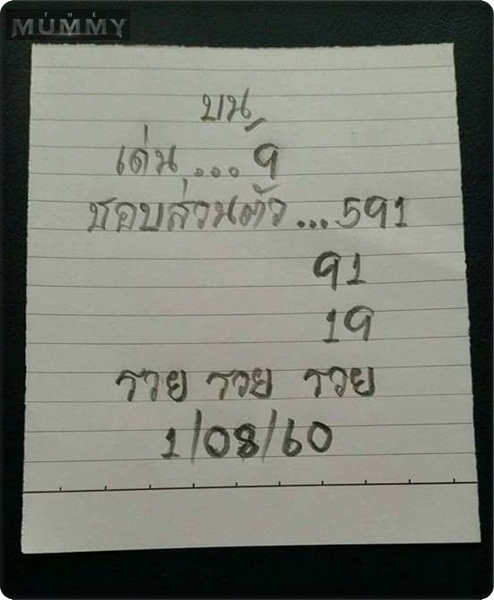 THE
MUMMY
บน
เด่น...9
ชอบส่วนตัว...591
91
19
รวย รวย รวย
1/08/60